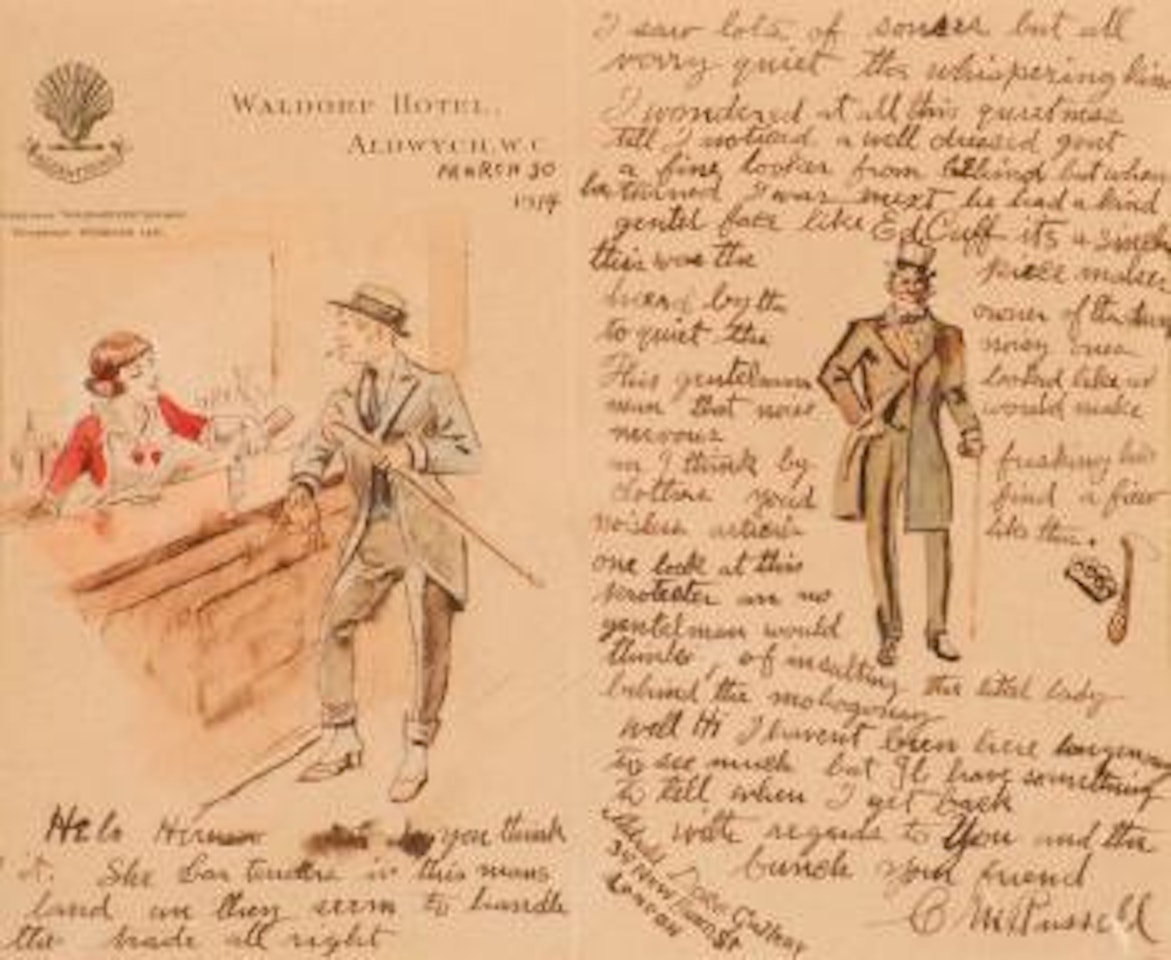 WALDORF HOTEL,
ALDWYCH, W.C.
MARCH 30
1914
Helo you think
it. She bar tenders in this mans
land an they seem to handle
the trade all right
I saw lots of but all
verry quiet the whispering
I wondered at all this quietness
till I noticed a well dressed gent
a fine looker from behind but when
he turned I was he had a kind
gentel face like Ed Cuff its a
this was the
hierd by the owner of the
to quiet the noisy ones
This gentelman looked like
man that noise would make
nervous
an I think by frisking his
clothes youd find a few
noisless articles like this.
one look at this
protecter an no
gentelman would
think, of insulting the litel lady
behind the mahogony
well Hi I havent been here
to see much but Il have something
to tell when I get back
with regards to you and the
bunch your friend
C M Russell
Dore Gallery
34 New Bond St
London